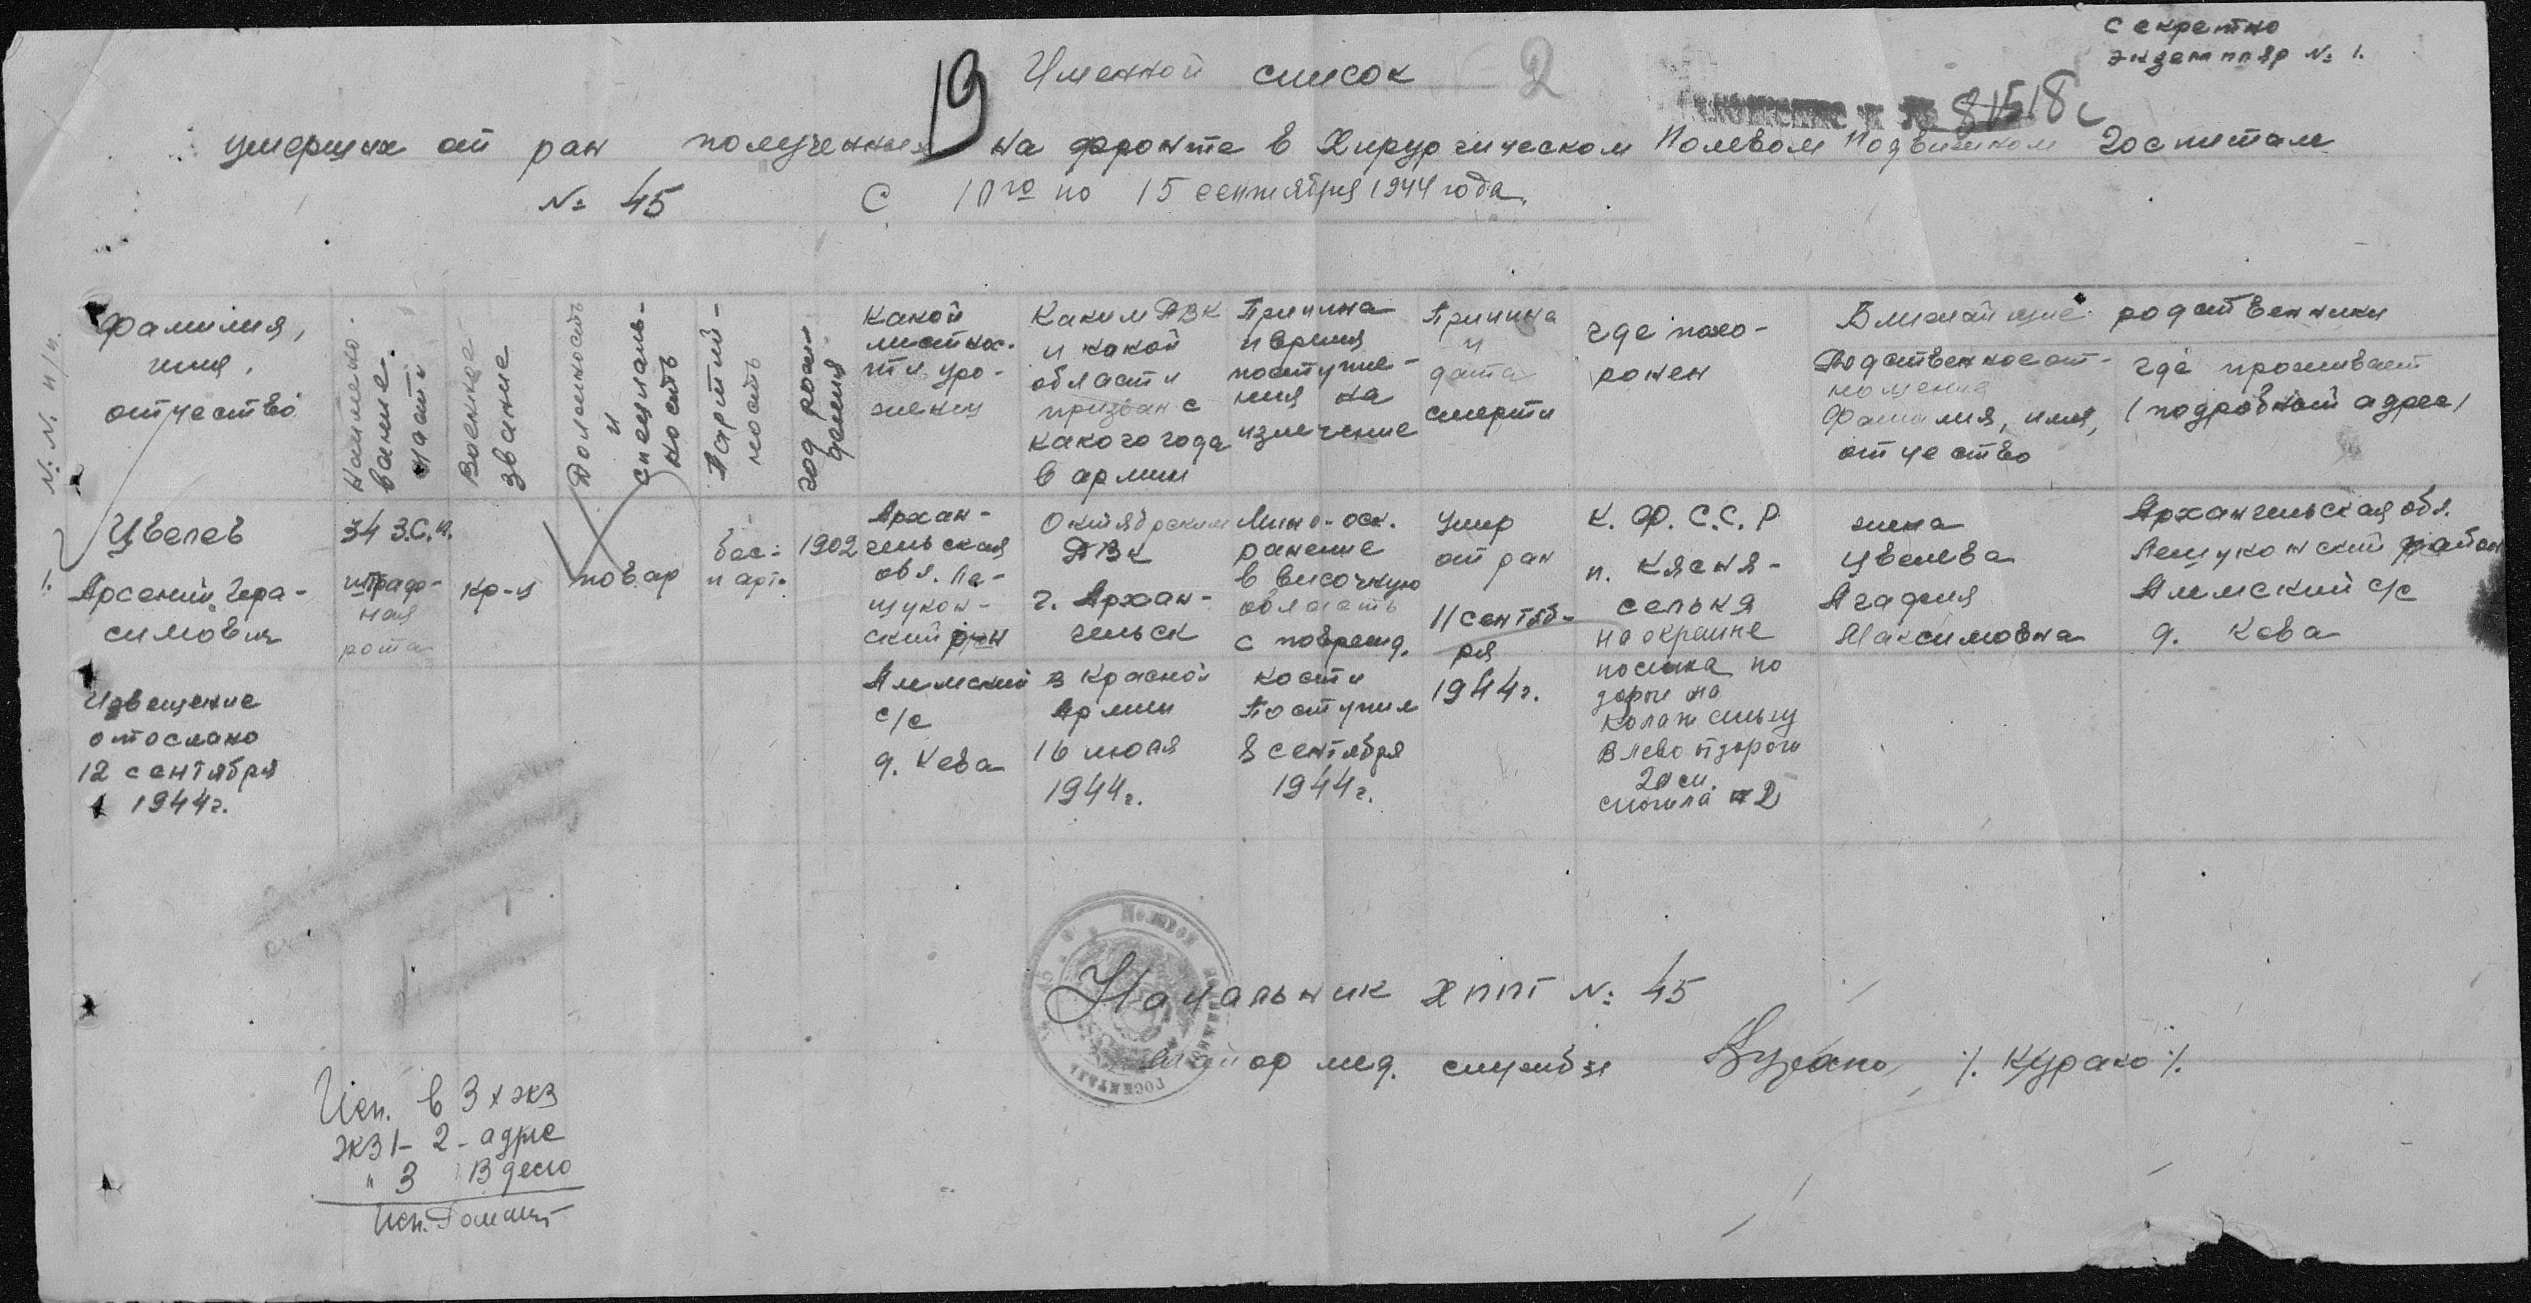 Секретно
экземпляр № 1.
19 Именной список 2
8518с
умерших от ран полученных на фронте в Хирургическом Полевом Подвижном Госпитале
№ 45 с 10го по 15 сентября 1944 года.
№ № п/п.
Фамилия,
имя,
отчество
Наимено-
вание
части
Военное
звание
Должность
и
специаль-
ность
Партий-
ность
год рож-
дения
Какой
местнос-
ти уро-
женец
Каким РВК
и какой
области
призван с
какого года
в армии
Причина
и время
поступле-
ния на
излечение
Причина
и
дата
смерти
где похо-
ронен
Ближайшие родственники
Родственное от-
ношение
Фамилия, имя,
отчество
где проживает
(подробный адрес)
1.
Цвелев
Арсений Гера-
симович
Извещение
отослано
12 сентября
1944г.
34 З.С.П.
штраф-
ная
рота
кр-ц
повар
бес-
парт.
1902
Архан-
гельская
обл. Ле-
шукон-
ский р-н
с/с
д. Кеба
Октябрьским
РВК
г. Архан-
гельск
в Красной
Армии
16 июля
1944г.
Мино-оск.
ранение
в височную
область
с поврежд.
кости
Поступил
8 сентября
1944г.
Умер
от ран
11 сентяб-
ря
1944г.
К. Ф. С. С. Р
п. Кясня-
селькя
на окраине
поселка по
влево от дороги
20 м.
могила № 2
жена
Цвелева
Агафия
Максимовна
Архангельская обл.
Лешуконский район
с/с
д. Кеба
Полевой
госпиталь
Начальник ХППГ № 45
Майор мед. службы Курако /. Курако /.
Исп. в 3х экз
экз 1- 2 - адрес
" 3 В дело
Исп.